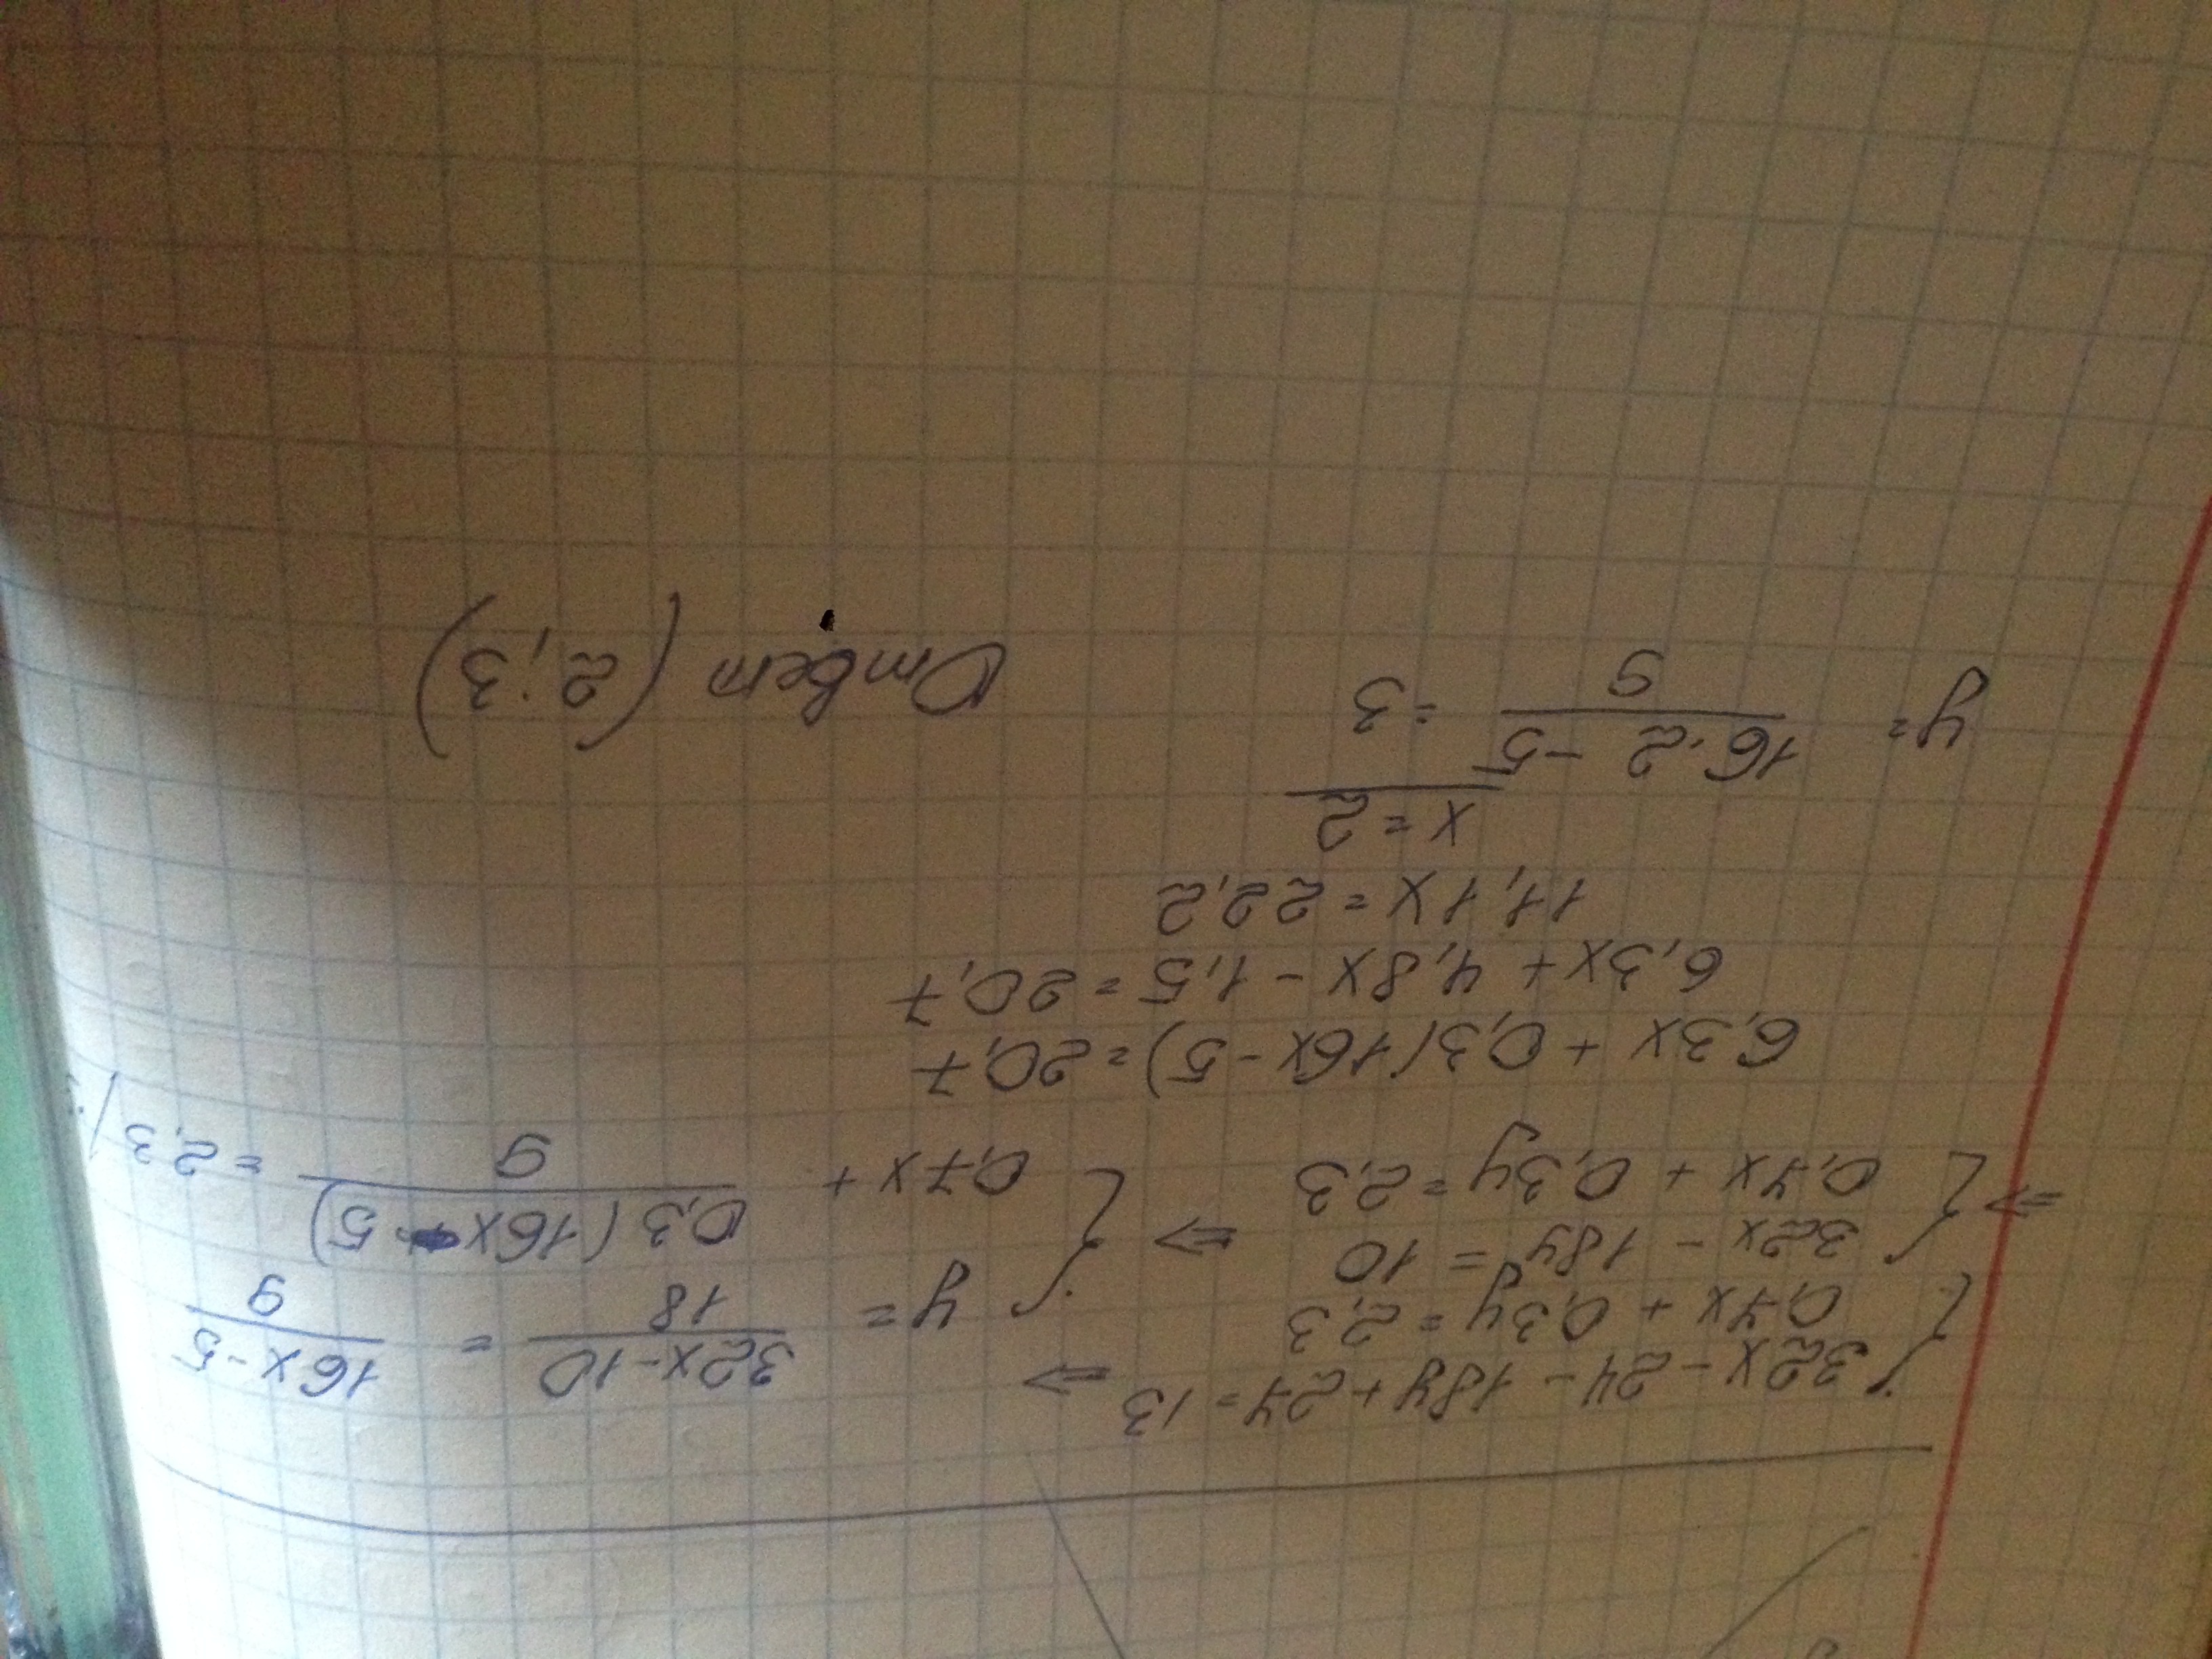 { 32x - 24 - 18y + 24 = 13 ⇒
{ 0,7x + 0,3y = 2,3
⇒ { 32x - 18y = 10 ⇒
{ 0,7x + 0,3y = 2,3
{ y = (32x-10)/18 = (16x-5)/9
{ 0,7x + 0,3(16x-5)/9 = 2,3 |
6,3x + 0,3(16x-5) = 20,7
6,3x + 4,8x - 1,5 = 20,7
11,1x = 22,2
x = 2
y = (16·2 - 5)/9 = 3
Ответ (2;3)